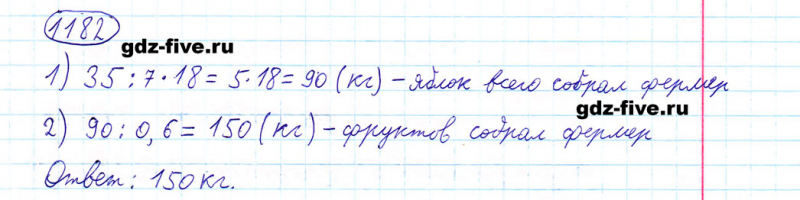 1182
gdz-five.ru
1) 35 : 7 · 18 = 5 · 18 = 90 (кг) – яблок всего собрал фермер
gdz-five.ru
2) 90 : 0,6 = 150 (кг) – фруктов собрал фермер
Ответ: 150 кг.